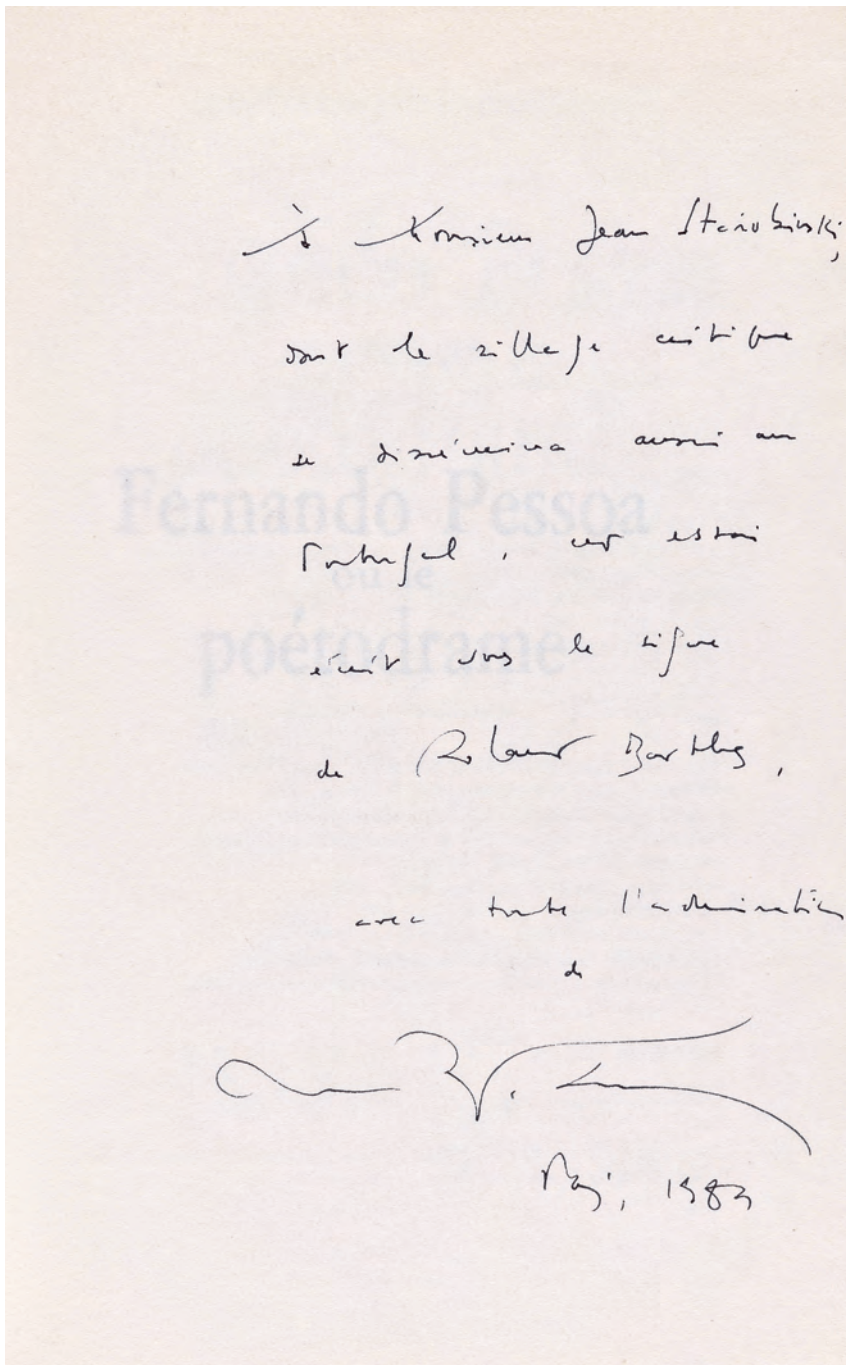 À Monsieur Jean Starobinski,
dont le sillage critique
se dissémina aussi au
Portugal, cet essai
écrit sous le signe
de Roland Barthes,
avec toute l'admiration
de
Fernando Pessoa
ou le
poétodrame
1989